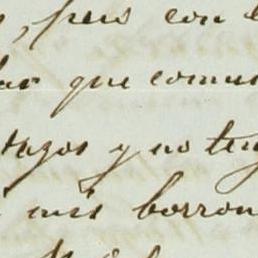 , pero con
que comun
tazos y no ten
mis borron